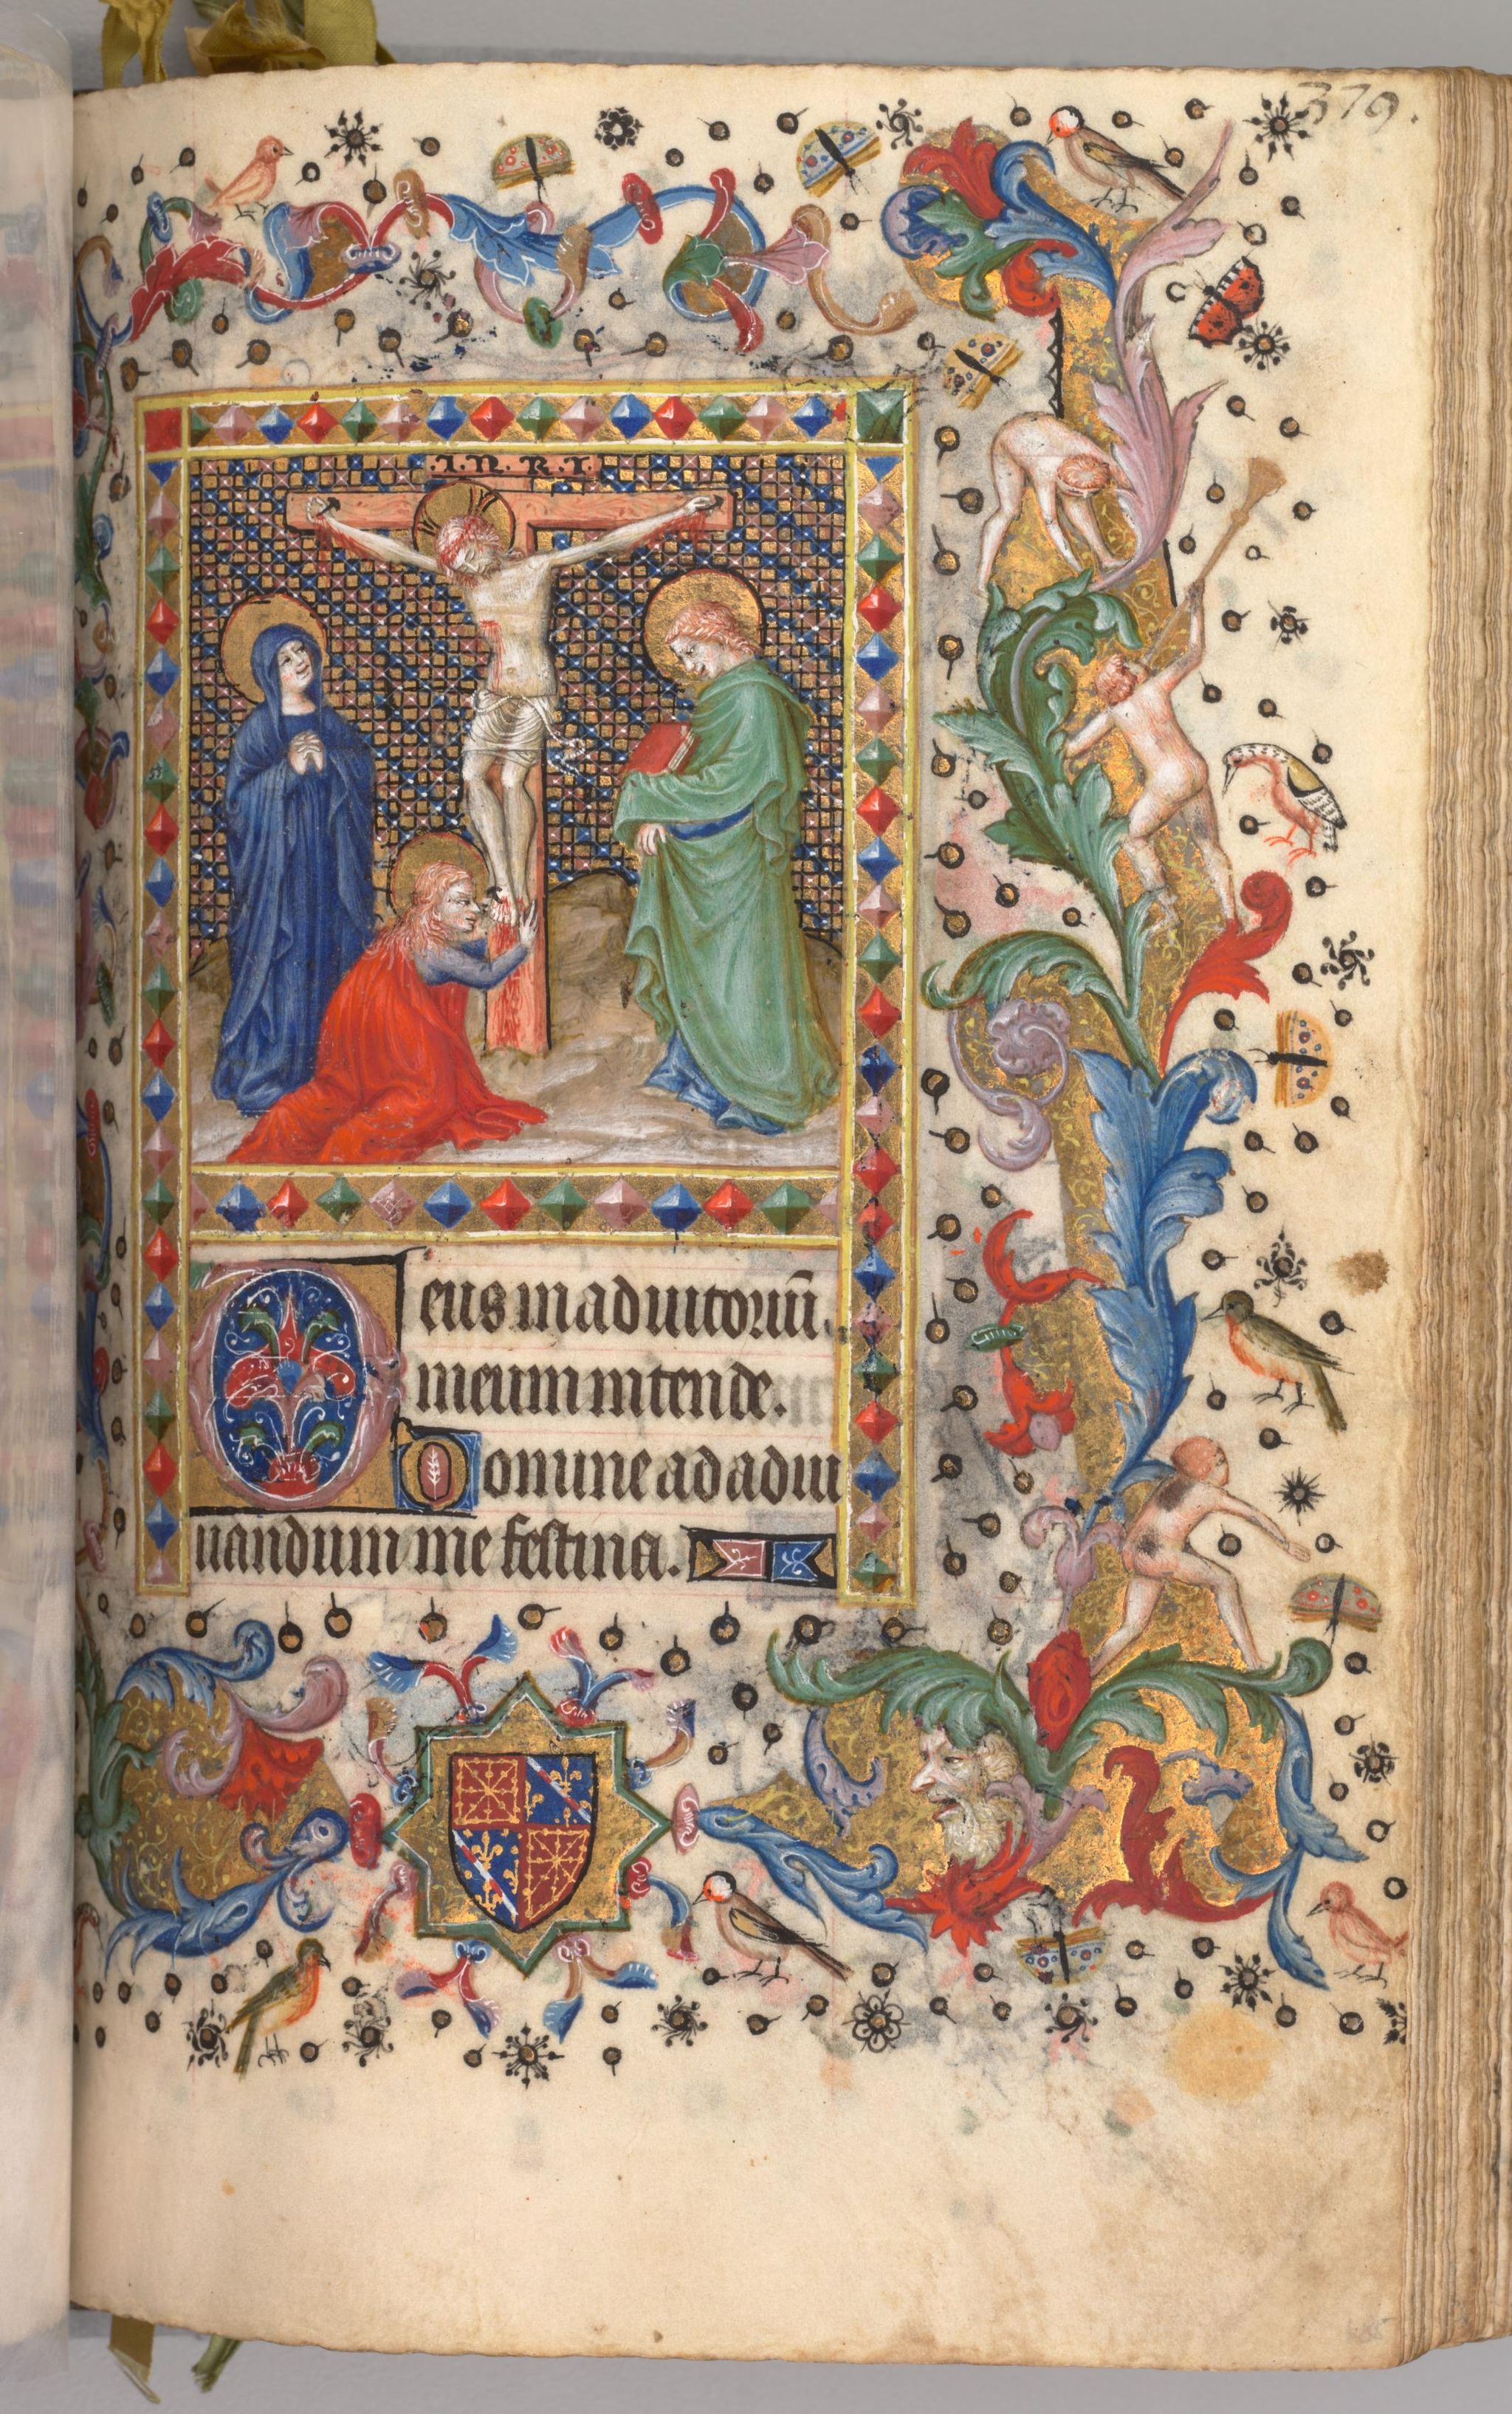 379.
.I.N.R.I.
Deus in adiutoriū
meum intende.
Domine ad adiu
uandum me festina.